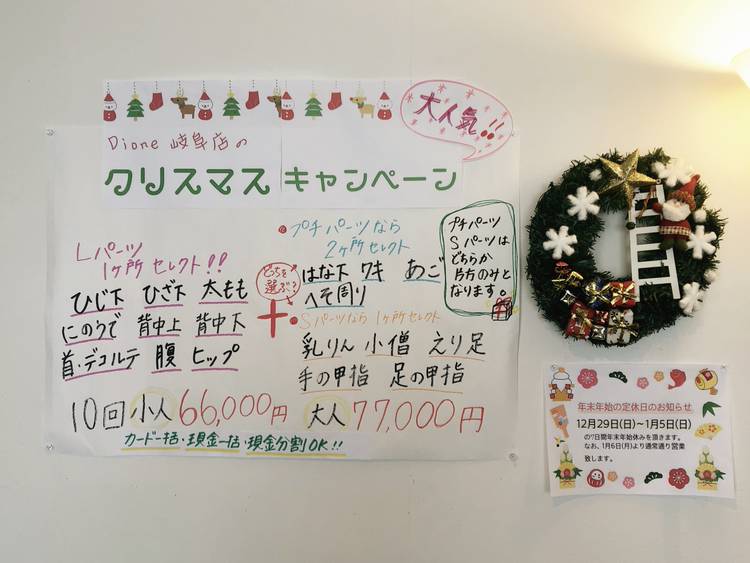 Dione 岐阜店の
クリスマスキャンペーン
大人氣!!
Lパーツ
1ヶ所セレクト!!
ひじ下 ひざ下 太もも
にのうで 背中上 背中下
首・デコルテ 腹 ヒップ
どちを
選ぶ?
プチパーツなら
2ヶ所セレクト
はな下 ワキ あご
へそ周り
Sパーツなら1ヶ所セレクト
乳りん 小僧 えり足
手の甲指 足の甲指
プチパーツ
Sパーツは
どちらか
片方のみと
なります。
10回 小人 66,000円 大人 77,000円
カード一括・現金一括・現金分割OK!!
年末年始の定休日のお知らせ
12月29日(日)～1月5日(日)
の7日間年末年始休みを頂きます。
なお、1月6日(月)より通常通り営業
致します。